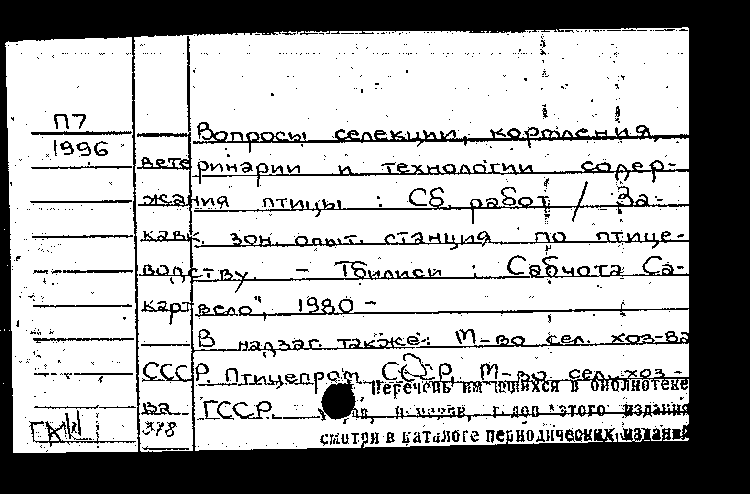 П7
1996
Вопросы селекции, кормления,
ветеринарии и технологии содер-
жания птицы : Сб. работ / За-
кавк. зон. опыт. станция по птице-
водству. – Тбилиси : Сабчота Са-
картвело", 1980 –
В надзаг. также: М-во сел. хоз-ва
СССР. Птицепром СССР, М-во сел. хоз-
ва ГССР.
378
Перечень имеющихся в библиотеке
и годов этого издания
смотри в каталоге периодических изданий